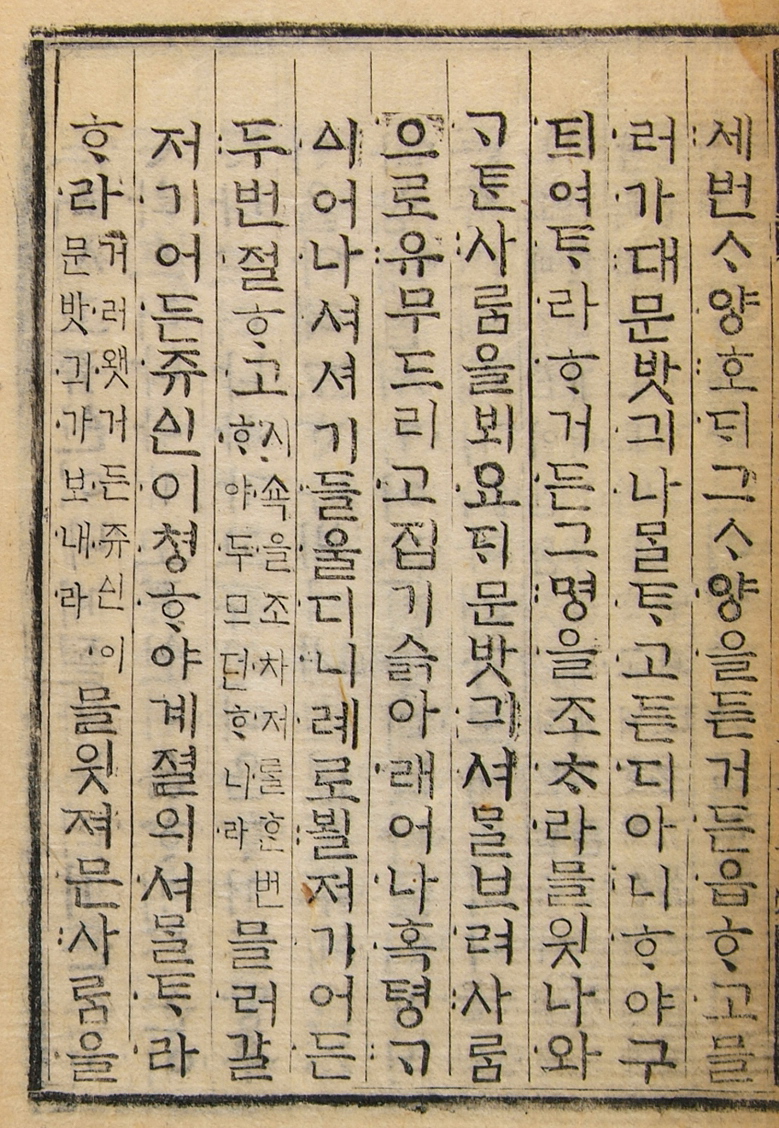 세번ᄉᆞ양호ᄃᆡ그ᄉᆞ양을든거든읍ᄒᆞ고믈
러가대문밧긔나ᄆᆞᆯᄐᆞ고든디아니ᄒᆞ야구
틔여ᄐᆞ라ᄒᆞ거든그명을조ᄎᆞ라믈윗나와
ᄀᆞᄐᆞᆫ사ᄅᆞᆷ을뵈요ᄃᆡ문밧긔셔ᄆᆞᆯ브려사ᄅᆞᆷ
으로유무드리고집기슭아래어나혹텽ᄀᆞ
ᅀᅵ어나셔셔기들울디니례로뵐저기어든
두번절ᄒᆞ고시쇽을조차저ᄅᆞᆯᄒᆞᆫ번ᄒᆞ야두므던ᄒᆞ니라믈러갈
저기어든쥬ᅀᅵᆫ이쳥ᄒᆞ야계졀의셔ᄆᆞᆯᄐᆞ라
ᄒᆞ라거러왯거든쥬신이문밧긔가보내라믈윗져믄사ᄅᆞᆷ을